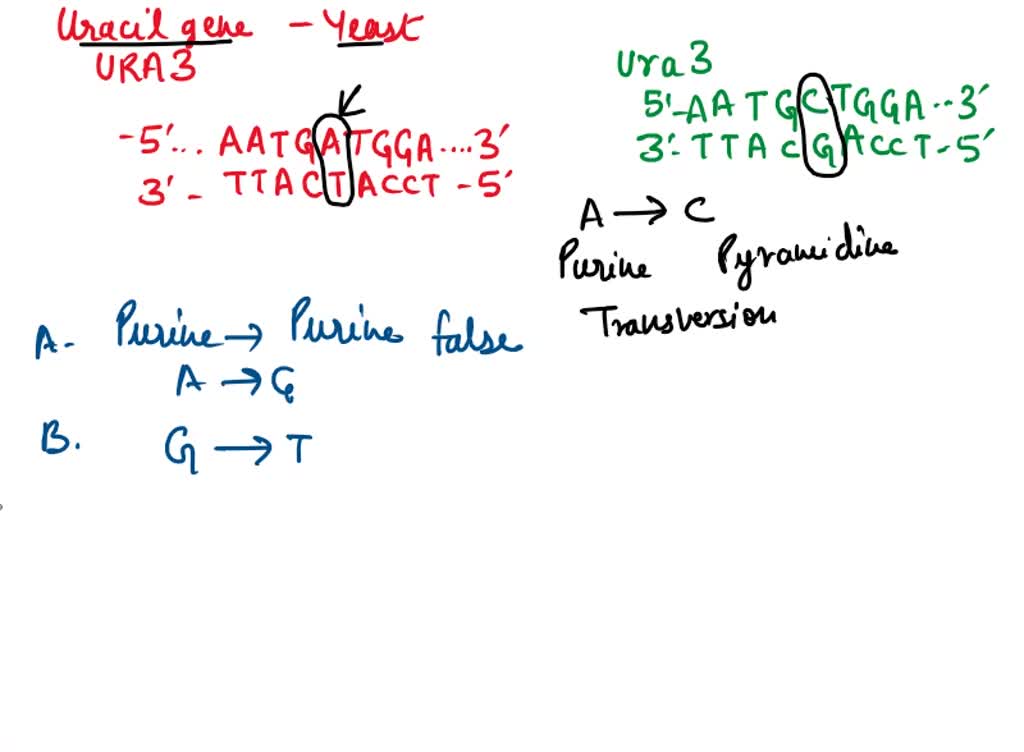 Uracil gene - Yeast
URA3
-5'... AATGATGGA....3'
3' - TTACTACCT -5'
Ura3
5'-AATGCTGGA..3'
3'-TTACGACCT-5'
A → C
Purine Pyramidine
Transversion
A- Purine → Purine false
A → G
B. G → T